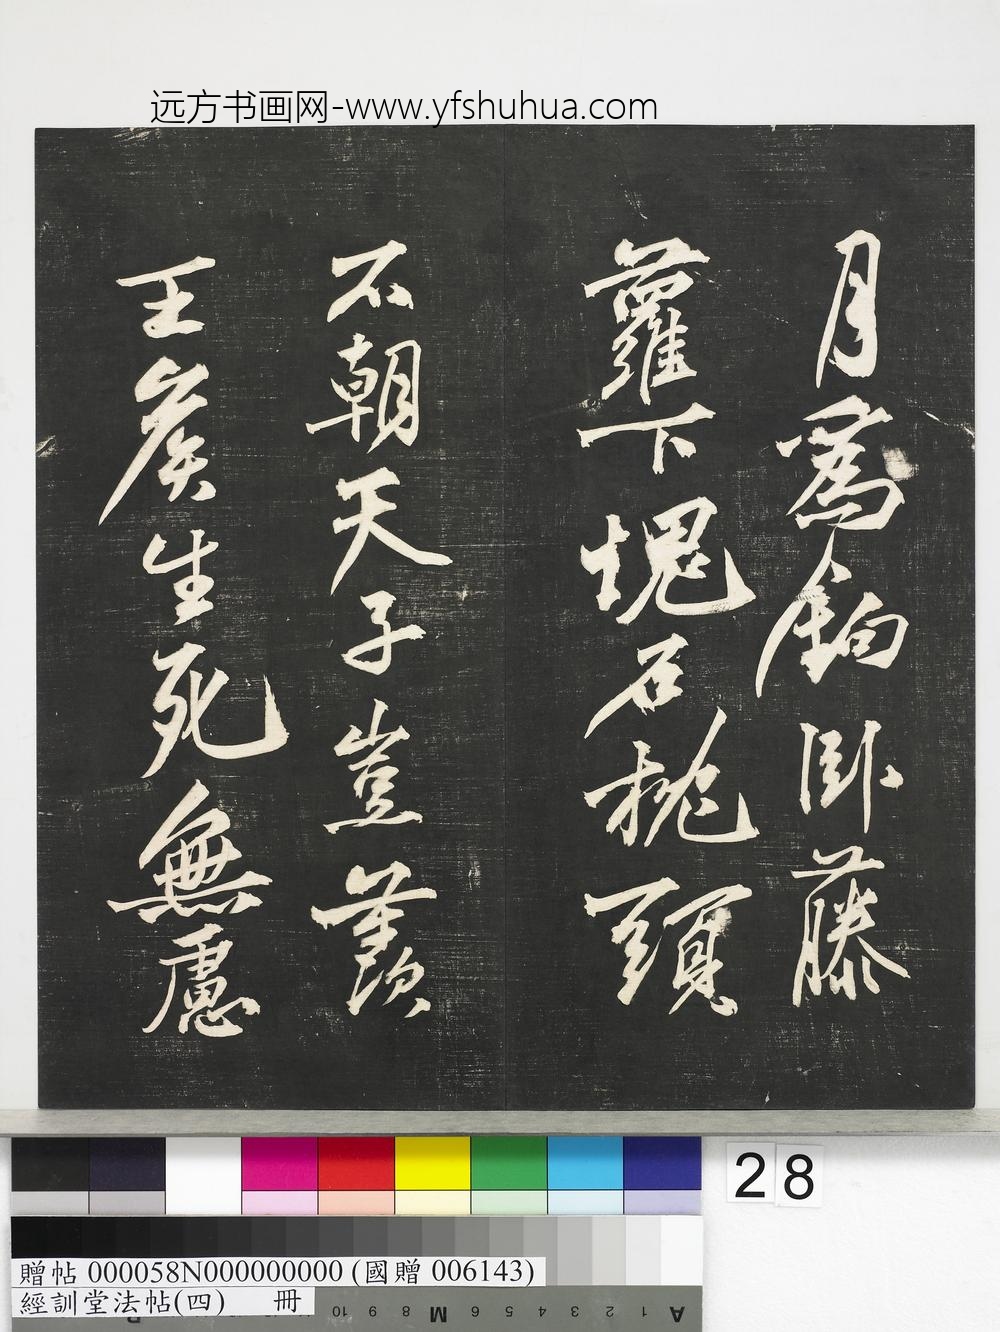 远方书画网-www.yfshuhua.com
月為鉤卧藤
蘿下塊石枕頭
不朝天子豈羨
王侯生死無慮
28
贈帖 000058N000000000 (國贈 006143)
經訓堂法帖(四) 冊
A 1 2 3 4 5 6 M 8 9 10